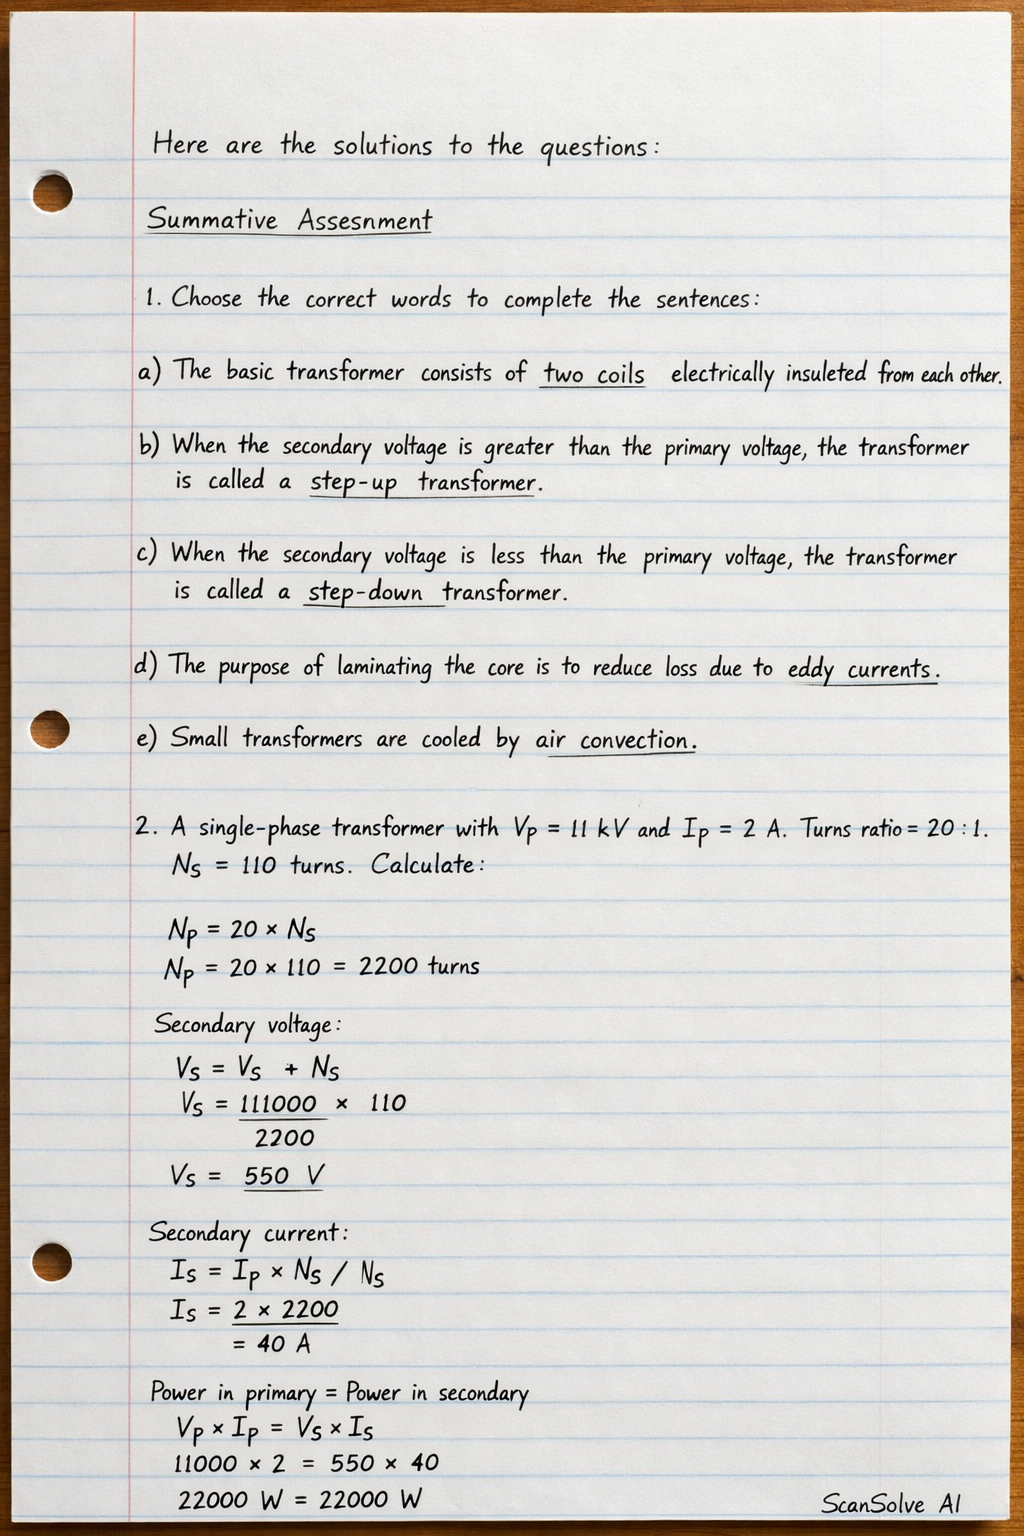 Here are the solutions to the questions:
Summative Assesnment
1. Choose the correct words to complete the sentences:
a) The basic transformer consists of two coils electrically insuleted from each other.
b) When the secondary voltage is greater than the primary voltage, the transformer
is called a step-up transformer.
c) When the secondary voltage is less than the primary voltage, the transformer
is called a step-down transformer.
d) The purpose of laminating the core is to reduce loss due to eddy currents.
e) Small transformers are cooled by air convection.
2. A single-phase transformer with Vp = 11 kV and Ip = 2 A. Turns ratio = 20 : 1.
Ns = 110 turns. Calculate:
Np = 20 × Ns
Np = 20 × 110 = 2200 turns
Secondary voltage:
Vs = Vs + Ns
Vs = 111000 × 110
2200
Vs = 550 V
Secondary current:
Is = Ip × Ns / Ns
Is = 2 × 2200
= 40 A
Power in primary = Power in secondary
Vp × Ip = Vs × Is
11000 × 2 = 550 × 40
22000 W = 22000 W
ScanSolve AI